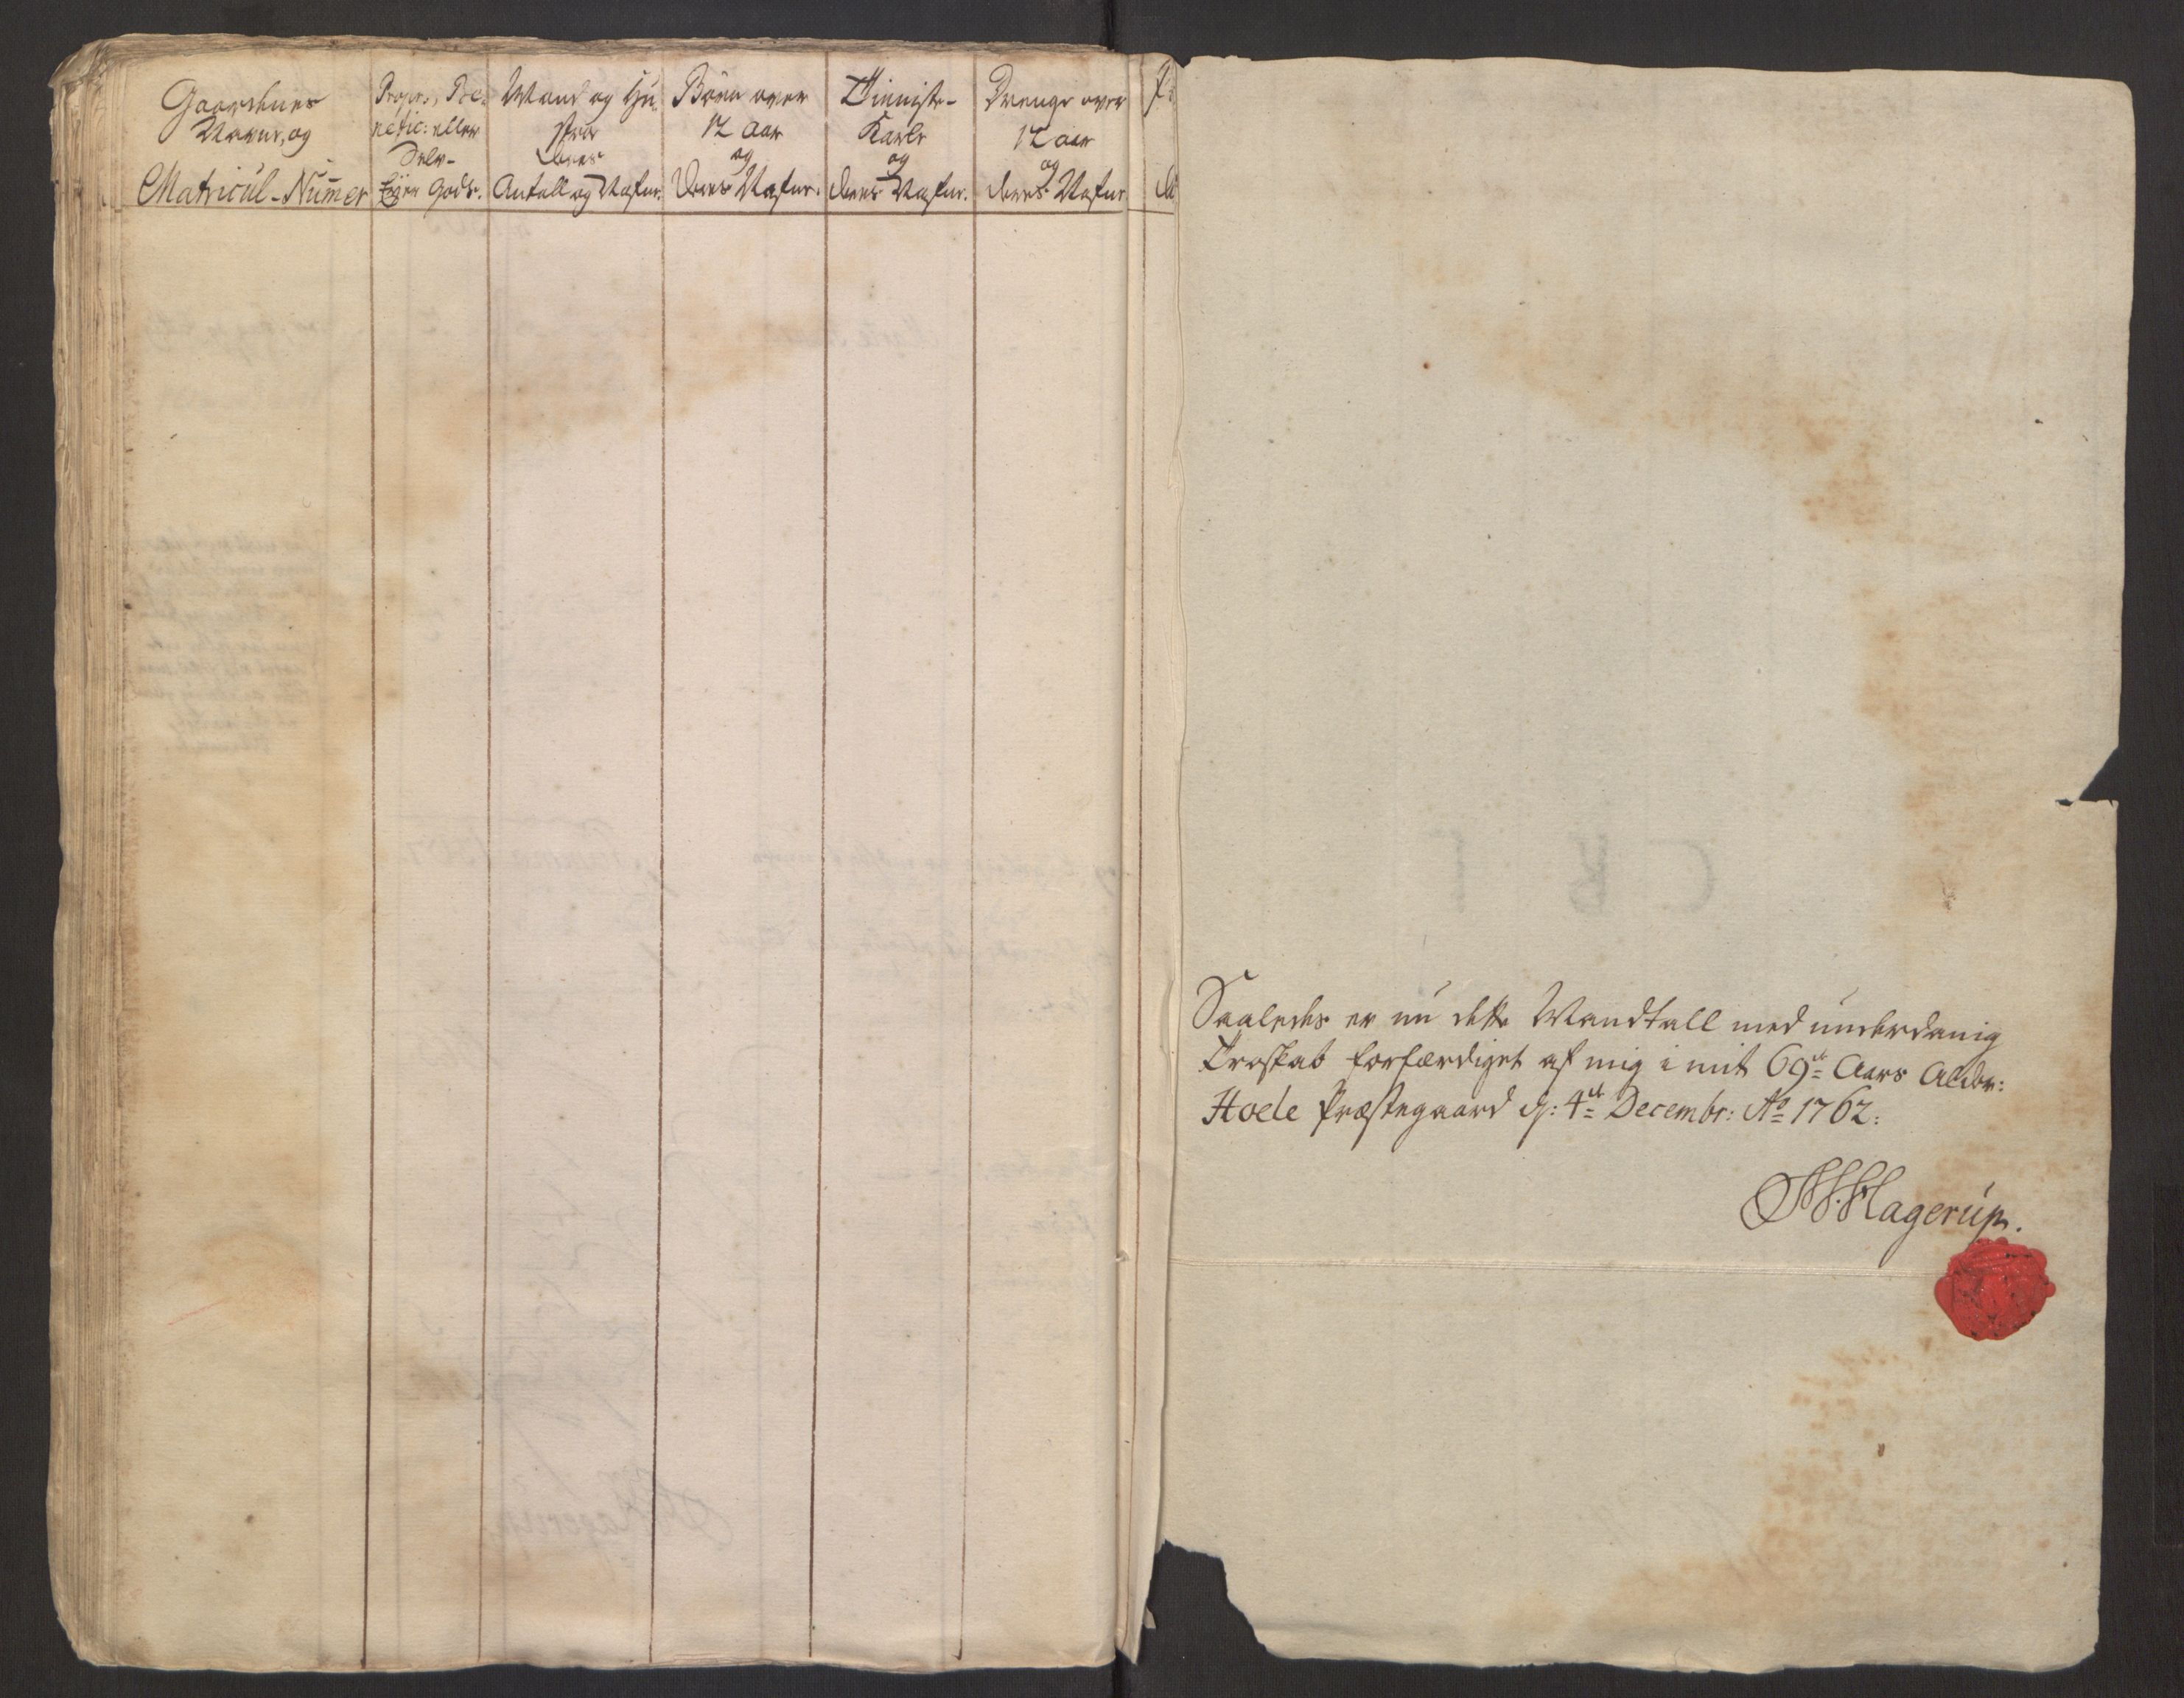 Gaardenes
Navne, og
Matricul-Numer
Propr:, Be-
nefic: eller
Selv-
Ejer Gods.
Mand og Hu-
stru
deres
Antall og Nafne.
Börn over
12 Aar
og
deres Nafne.
Tieniste-
Karle
og
deres Nafne.
Drenge over
12 aar
og
deres Nafne
Saaledes er nu dette Mandtall med underdanig
Troskab forfærdiget af mig i mit 69de Aars Alder:
Hoele Præstegaard d: 4de Decembr: Ao 1762:
Hagerup.